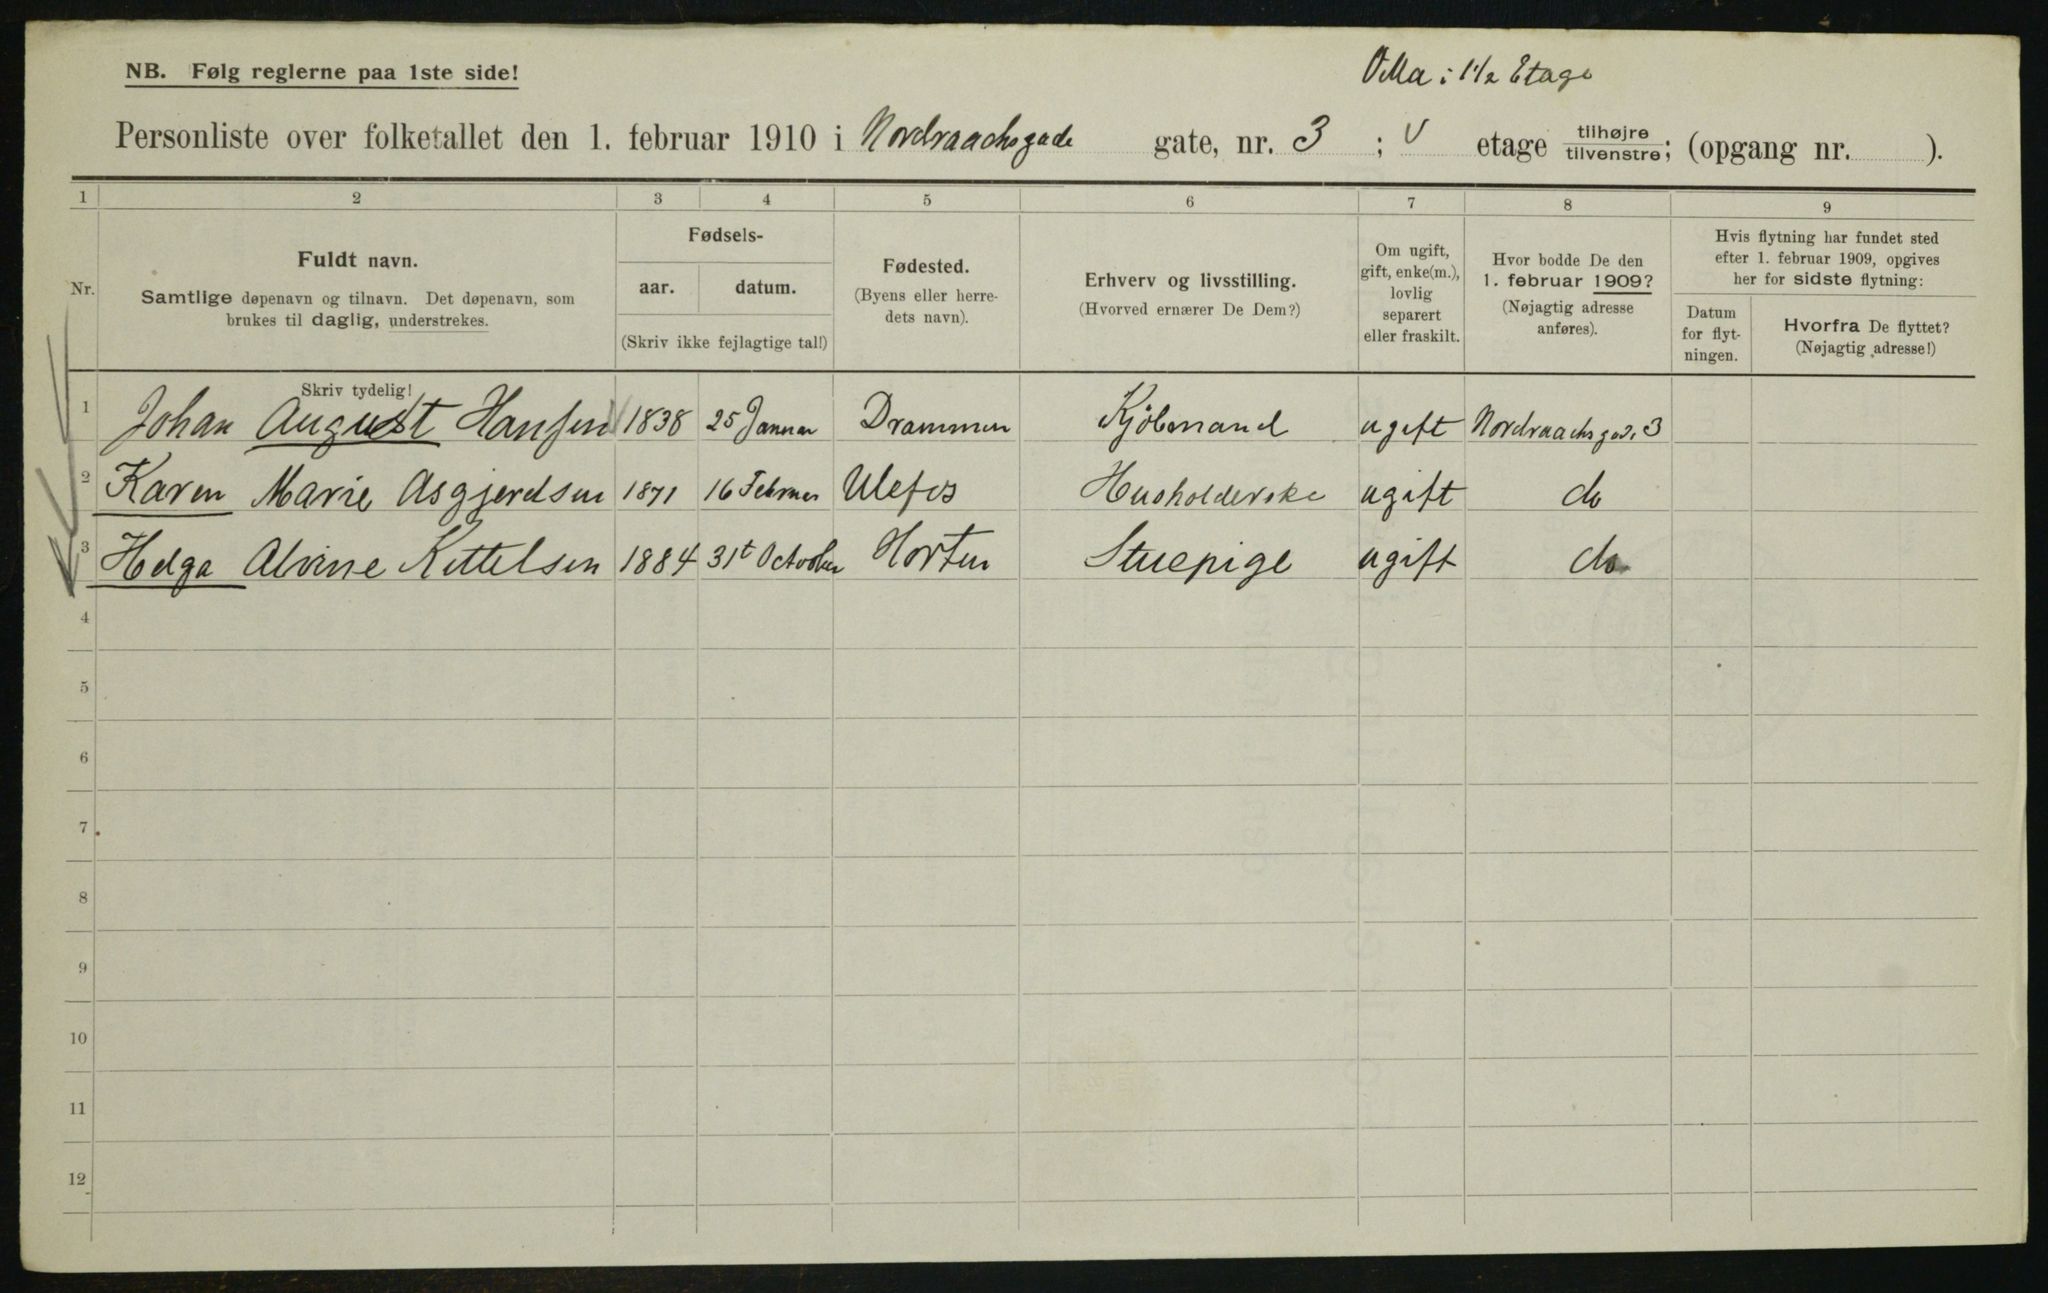 NB. Følg reglerne paa 1ste side!
Villa i 1 1/2 Etage
Personliste over folketallet den 1. februar 1910 i Nordraachsgade gate, nr. 3 ; V etage tilhøjre/tilvenstre; (opgang nr. ).
1 2 3 4 5 6 7 8 9
Nr.
Fuldt navn.
Samtlige døpenavn og tilnavn. Det døpenavn, som
brukes til daglig, understrekes.
Skriv tydelig!
Fødsels-
aar. datum.
(Skriv ikke fejlagtige tal!)
Fødested.
(Byens eller herre-
dets navn).
Erhverv og livsstilling.
(Hvorved ernærer De Dem?)
Om ugift,
gift, enke(m.),
lovlig
separert
eller fraskilt.
Hvor bodde De den
1. februar 1909?
(Nøjagtig adresse
anføres).
Hvis flytning har fundet sted
efter 1. februar 1909, opgives
her for sidste flytning:
Datum
for flyt-
ningen.
Hvorfra De flyttet?
(Nøjagtig adresse!)
1 Johan August Hansen 1838 25 Januar Drammen Kjöbmand ugift Nordraachsgade 3
2 Karen Marie Asgjerdsen 1871 16 Februar Ulefos Husholderske ugift do
3 Helga Alvine Kittelsen 1884 31t October Horten Stuepige ugift do
4
5
6
7
8
9
10
11
12